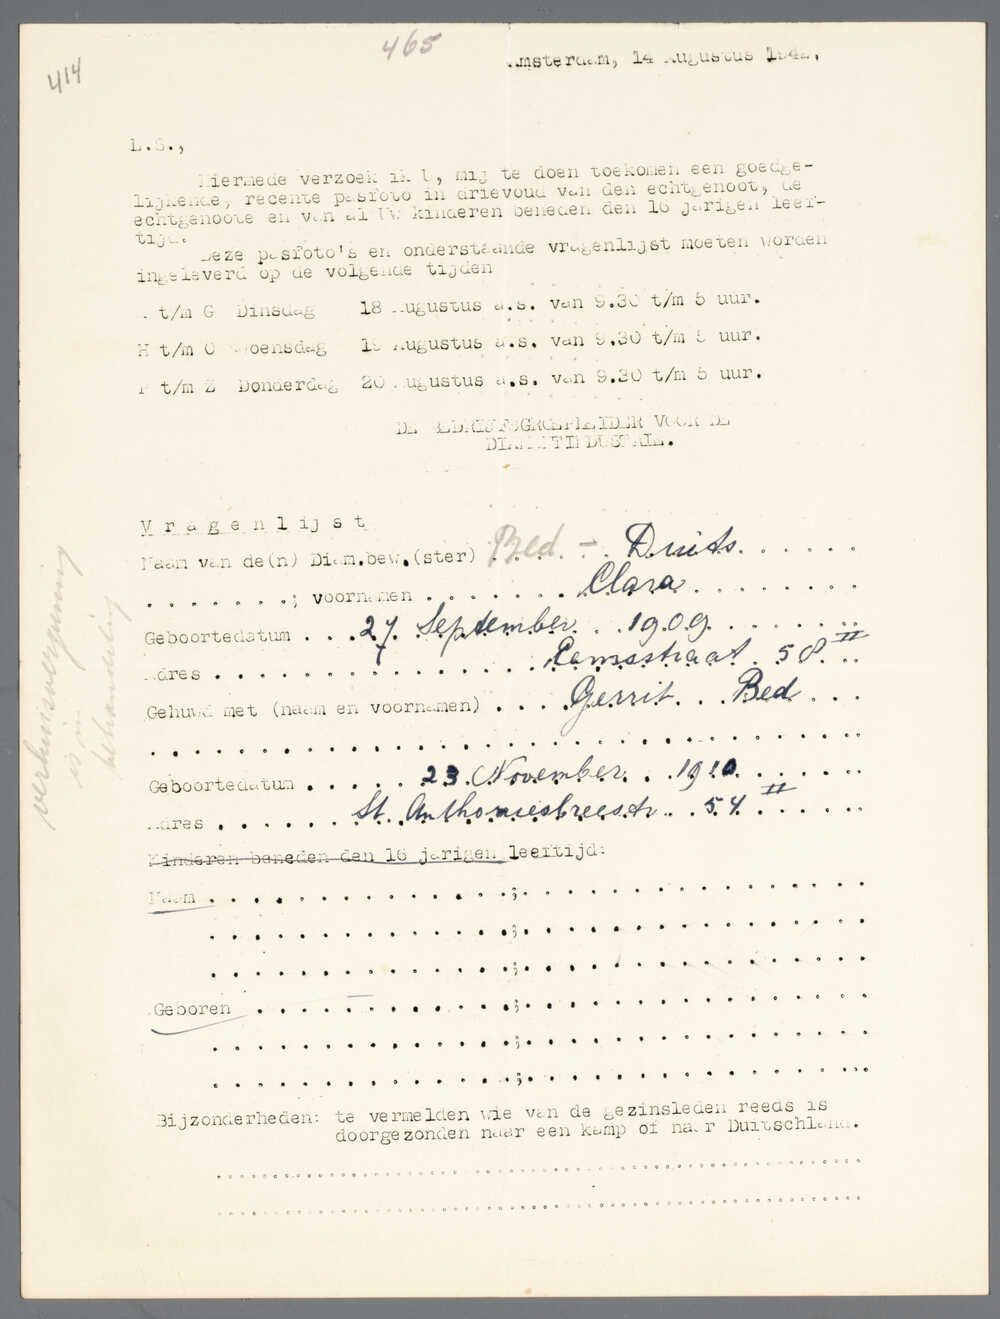 465
414
Amsterdam, 14 Augustus 1942.
L.S.,
Hiermede verzoek ik U, mij te doen toekomen een goedge-
lijkende, recente pasfoto in drievoud van den echtgenoot, de
echtgenoote en van al Uw kinderen beneden den 16 jarigen leef-
tijd.
Deze pasfoto's en onderstaande vragenlijst moeten worden
ingeleverd op de volgende tijden
A t/m G Dinsdag 18 Augustus a.s. van 9.30 t/m 5 uur.
H t/m O Woensdag 19 Augustus a.s. van 9.30 t/m 5 uur.
P t/m Z Donderdag 20 Augustus a.s. van 9.30 t/m 5 uur.
DE BEDRIJFSGROEPLEIDER VOOR DE
DIAMANTINDUSTRIE.
Vragenlijst
Naam van de(n) Diam.bew.(ster) Bed. - Druits
; voornamen Clara
Geboortedatum 27 September 1909
Adres 58 II
Gehuwd met (naam en voornamen) Gerrit Bed
Geboortedatum 23 November 1910
Adres St. Anthoniesbreestr. 54 II
Kinderen beneden den 16 jarigen leeftijd:
Naam ;
;
;
Geboren ;
;
;
Bijzonderheden: te vermelden wie van de gezinsleden reeds is
doorgezonden naar een kamp of naar Duitschland.
verhuisvergunning
is in
behandeling